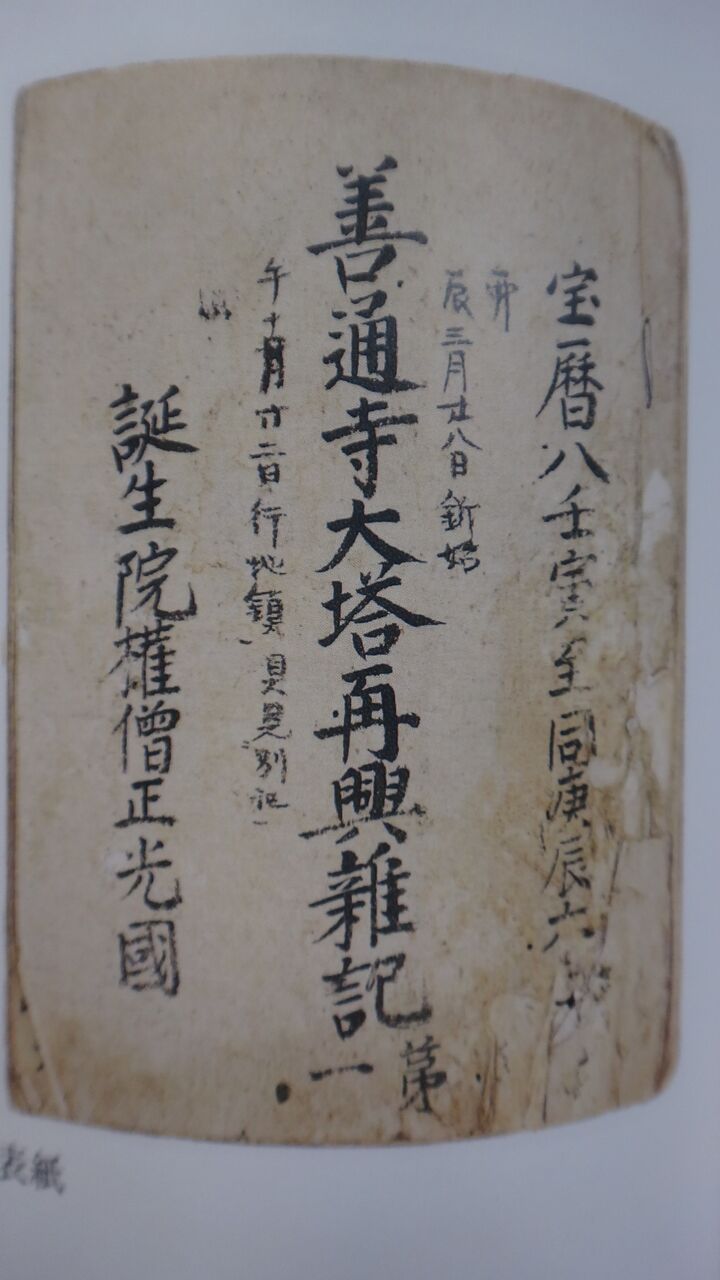 宝暦八壬寅至同庚辰六
再
辰三月廿八日釿始
善通寺大塔再興雜記
第一
午十月廿二日行地鎮
具見別記
誕生院權僧正光國
表紙